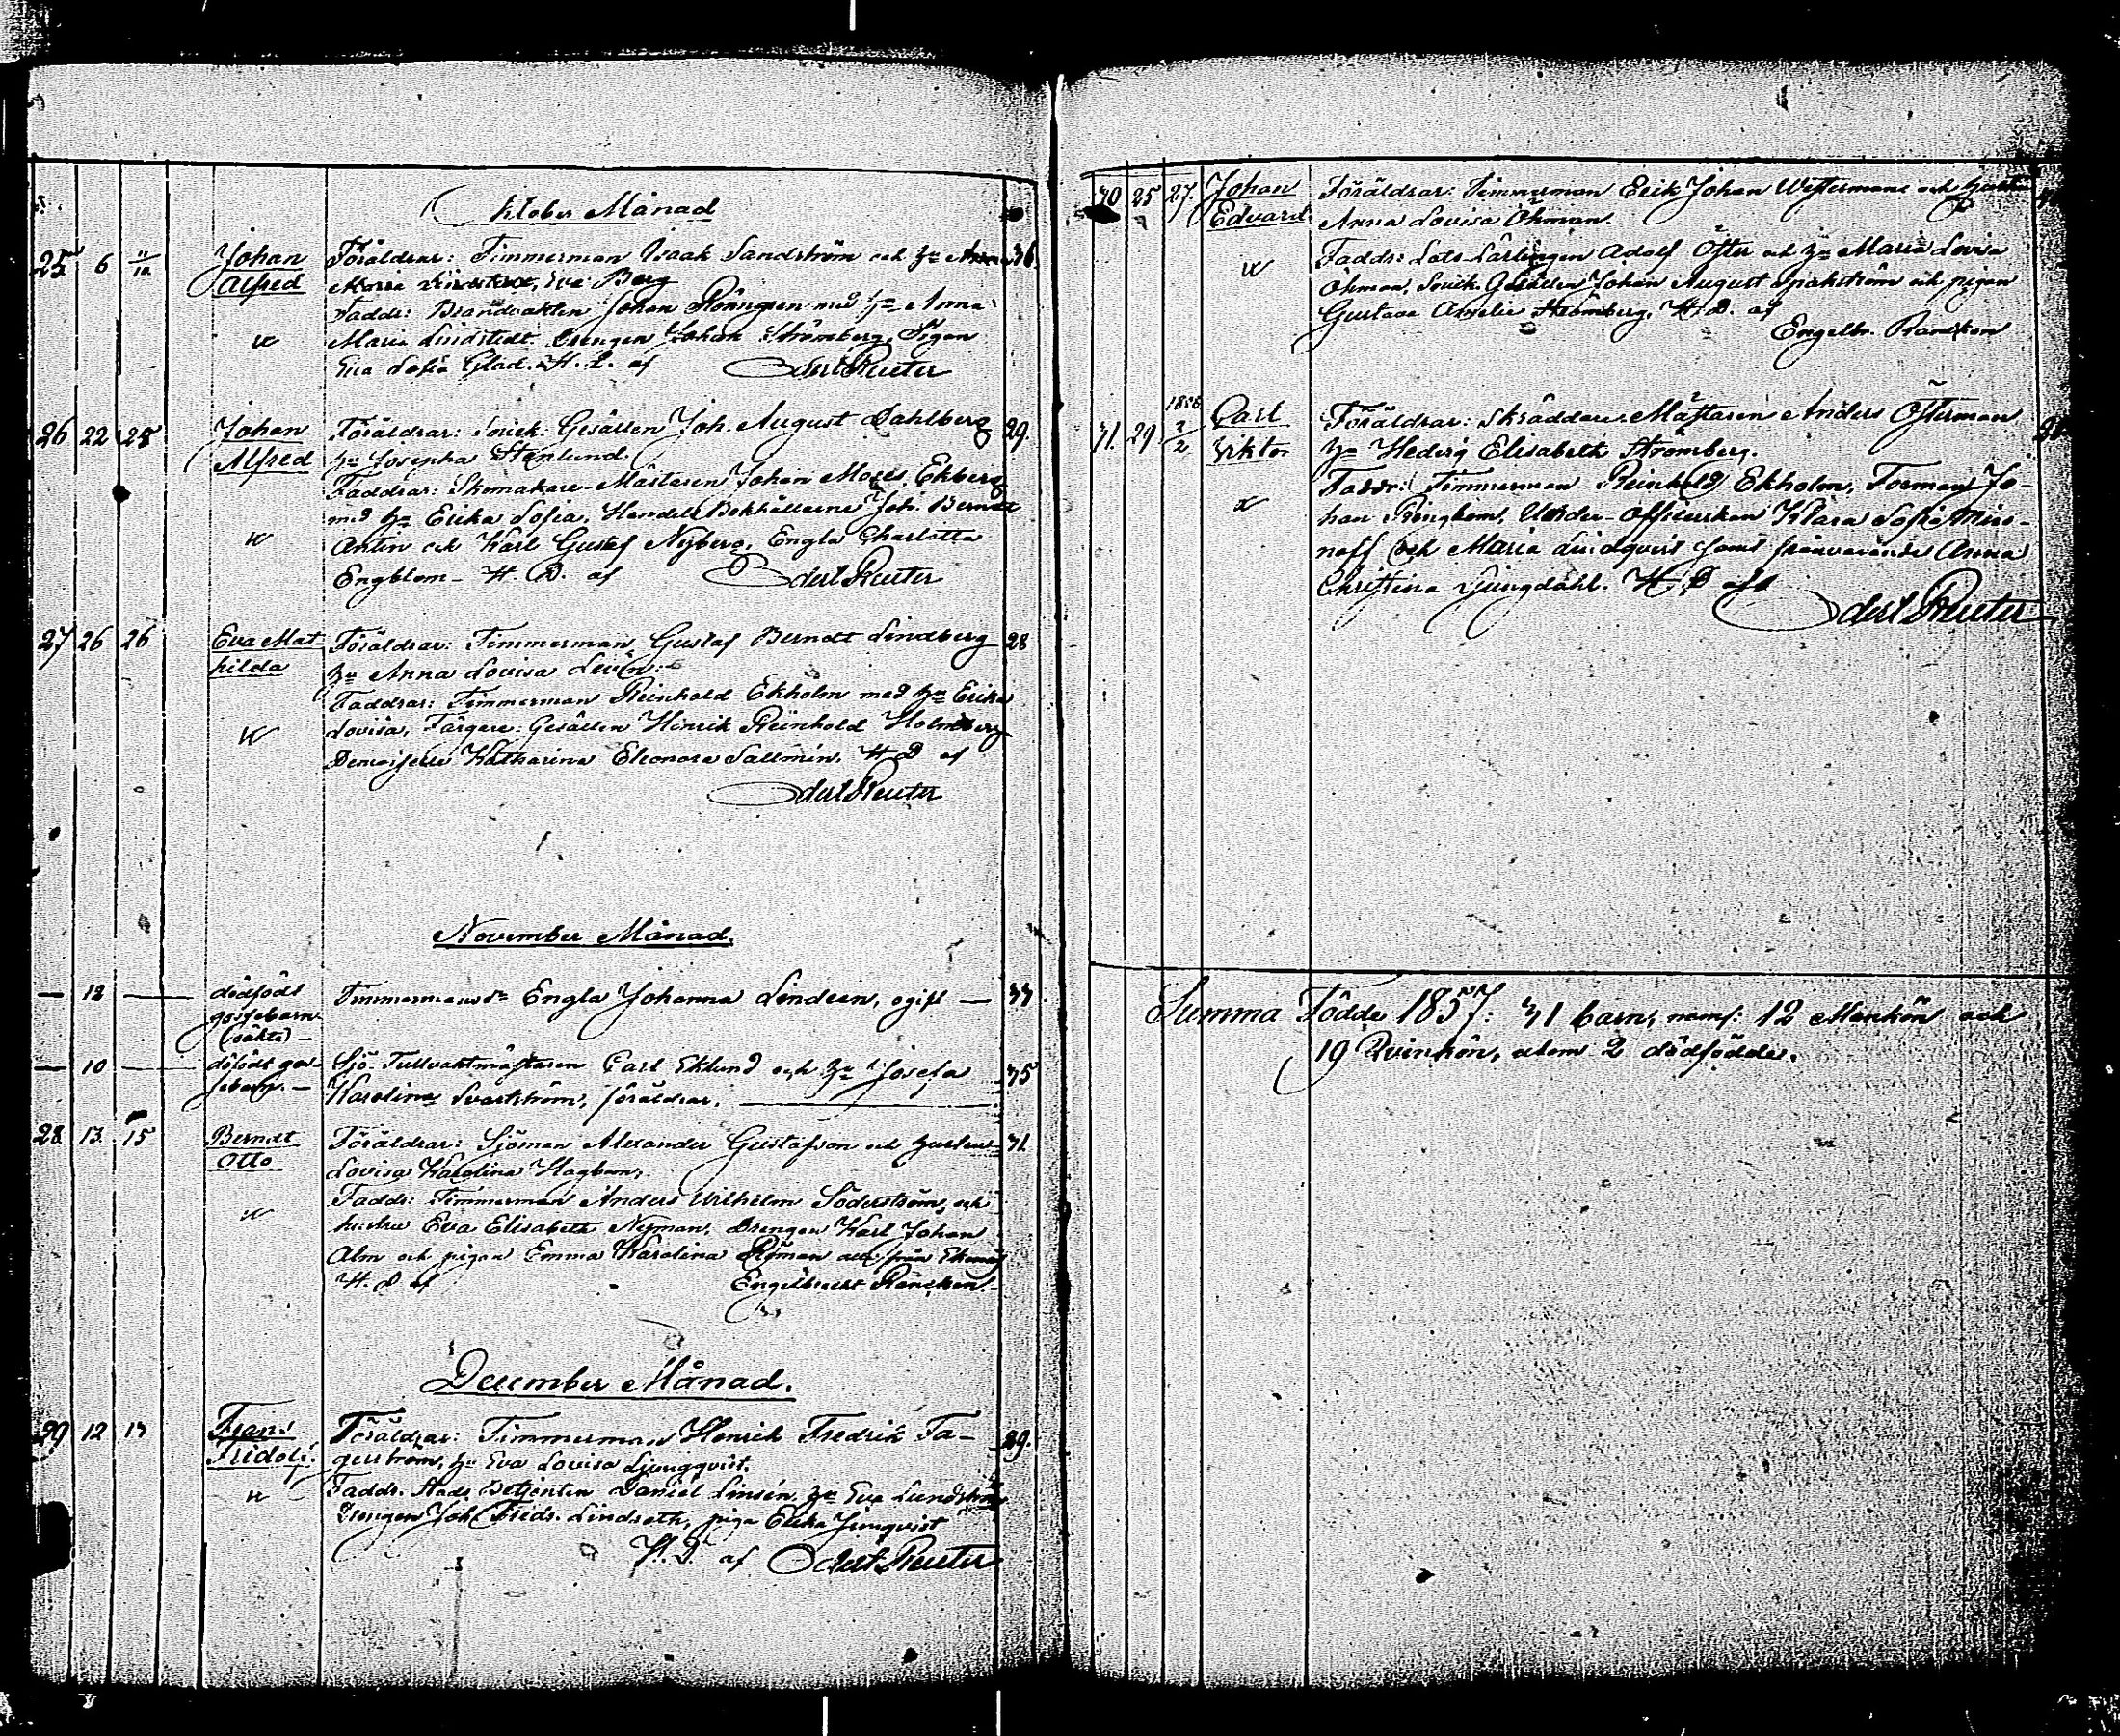 Oktober Månad
25 6 11/10 Johan Föräldrar: Timmerman Isaak Sandström och hu 36.
Alfred Maria Eva Berg
Faddr: Brandvakten Johan med hu Anna
Maria Lindstedt. Drengen Johan Strömberg. Pigan
Eva Sofia Glad. H. D. af Odert Reuter
26 22 28 Johan Föräldrar: Snick: Gesällen Joh. August Dahlberg 29.
Alfred hu Josepha Stenlund.
Faddrar: Skomakare-Mästaren Johan Moses Ekberg
med hu Erika Sofia. Handels Bokhållarne Joh. Berndt
Antin och Karl Gustaf Nyberg, Engla Charlotta
Engblom – H. D. af Odert Reuter
27 26 26 Eva Mat Föräldrar: Timmerman Gustaf Berndt Lindberg 28
hilda hu Anna Lovisa Levin:
Faddrar: Timmerman Reinhold Ekholm med hu Erika
Lovisa, Färgare: Gesällen Hinrik Reinhold Holmberg
Demoiselle Katharina Eleonora Sallmén. H. D. af
Odert Reuter
November Månad.
— 12 — dödfödt Timmermansdr Engla Johanna Lindeen, ogift — 33
gossebarn
(oäkta) –
— 10 — dödfödt gos- Sjö-Tullvaktmästaren Carl Eklund och hu Josefa 35
sebarn. — Karolina Svartström, föräldrar.
28 13. 15 Berndt Föräldrar: Sjöman Alexander Gustafsson och hustrun 31
Otto Lovisa Karolina Hagbom,
Faddr: Timmerman Anders Wilhelm Söderström och
hustru Eva Elisabeth Nyman, Drengen Karl Johan
Alm och pigan Emma Karolina Röman alla från Ekenäs
H. D. af Engelbrecht Rancken
December Månad.
29 12 13 Frans Föräldrar: Timmerman Henrik Fredrik Fa- 29.
Fridolf. gerström, hu Eva Lovisa Ljungqvist.
Faddr. Stads Betjenten Daniel Linsén, hu Eva Lundström
Drengen Joh. Fredr. Lindroth, piga Erika
H. D. af Odert Reuter
30 25 27. Johan Föräldrar: Timmerman Erik Johan Westerman och hustru
Edvard Anna Lovisa Öhman.
Faddr: Lots Lärlingen Adolf Öster och hu Maria Lovisa
Öhman, Snick. Gesällen Johan August Spakström och pigan
Gustava Amelie Strömberg, H. D. af
Engelbr. Rancken
1858
31. 29 2/2 Carl Föräldrar: Skräddare-Mästaren Anders Österman
Viktor hu Hedvig Elisabeth Strömberg.
Faddr: Timmerman Reinhold Ekholm, Forman Jo-
han Ringbom, Under-officerskan Klara Sofia Miro-
noff och Maria Lindqvist samt frånvarande Anna
Christina Ljungdahl. H D af
Odert Reuter
Summa Födde 1857: 31 barn, neml: 12 Mankön och
19 Qvinkön, utom 2 dödfödde.